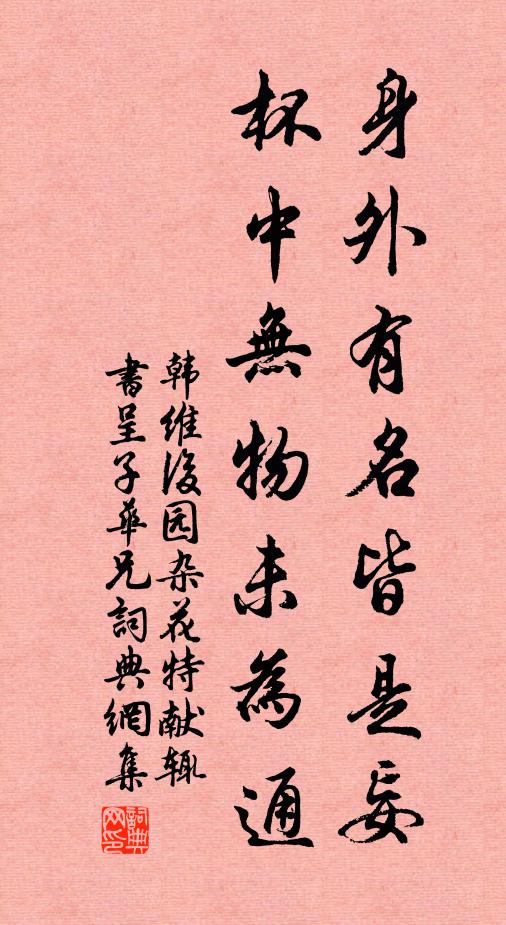 身外有名皆是妄
杯中無物未為通
韩維後园杂花特献辄
書呈子華兄詞典網集
詞典网印